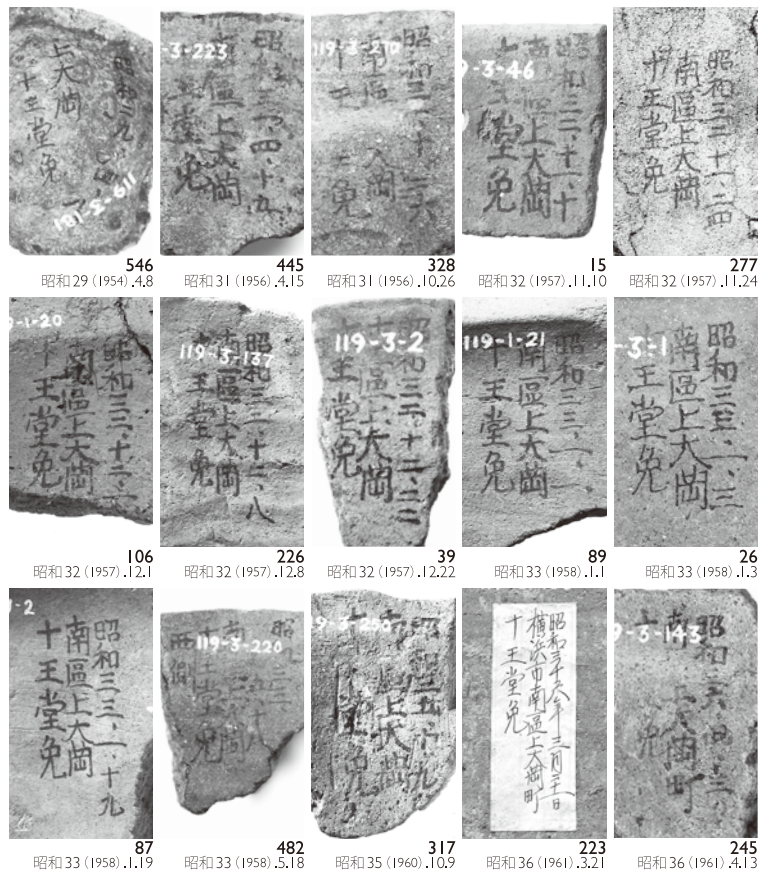 昭和二九
上大岡
十王堂免
119-3-181
546
昭和29（1954）.4.8
-3-223
昭和三一、四、十五
南區上大岡
堂免
445
昭和31（1956）.4.15
119-3-210
昭和三一、十、二六
南區 大岡
十王 免
328
昭和31（1956）.10.26
9-3-46
昭和三二、十一、十
南區上大岡
十王堂免
15
昭和32（1957）.11.10
昭和三二、十一、二四
南區上大岡
十王堂免
277
昭和32（1957）.11.24
9-1-20
昭和三二、十二、一
南區上大岡
十王堂免
106
昭和32（1957）.12.1
119-3-137
昭和三二、十二、八
南區上大岡
十王堂免
226
昭和32（1957）.12.8
119-3-2
昭和三二、十二、二二
南區上大岡
十王堂免
39
昭和32（1957）.12.22
119-1-21
昭和三三、一、一
南區上大岡
十王堂免
89
昭和33（1958）.1.1
-3-1
昭和三三、一、三
南區上大岡
十王堂免
26
昭和33（1958）.1.3
1-2
昭和三三、一、十九
南區上大岡
十王堂免
87
昭和33（1958）.1.19
119-3-220
昭
南
十王堂免
西側
482
昭和33（1958）.5.18
9-3-250
上大岡
317
昭和35（1960）.10.9
昭和三十六年三月二十一日
横浜市南區上大岡町
十王堂免
223
昭和36（1961）.3.21
9-3-143
昭和三六、四、十三
南 上大岡町
十 免
245
昭和36（1961）.4.13